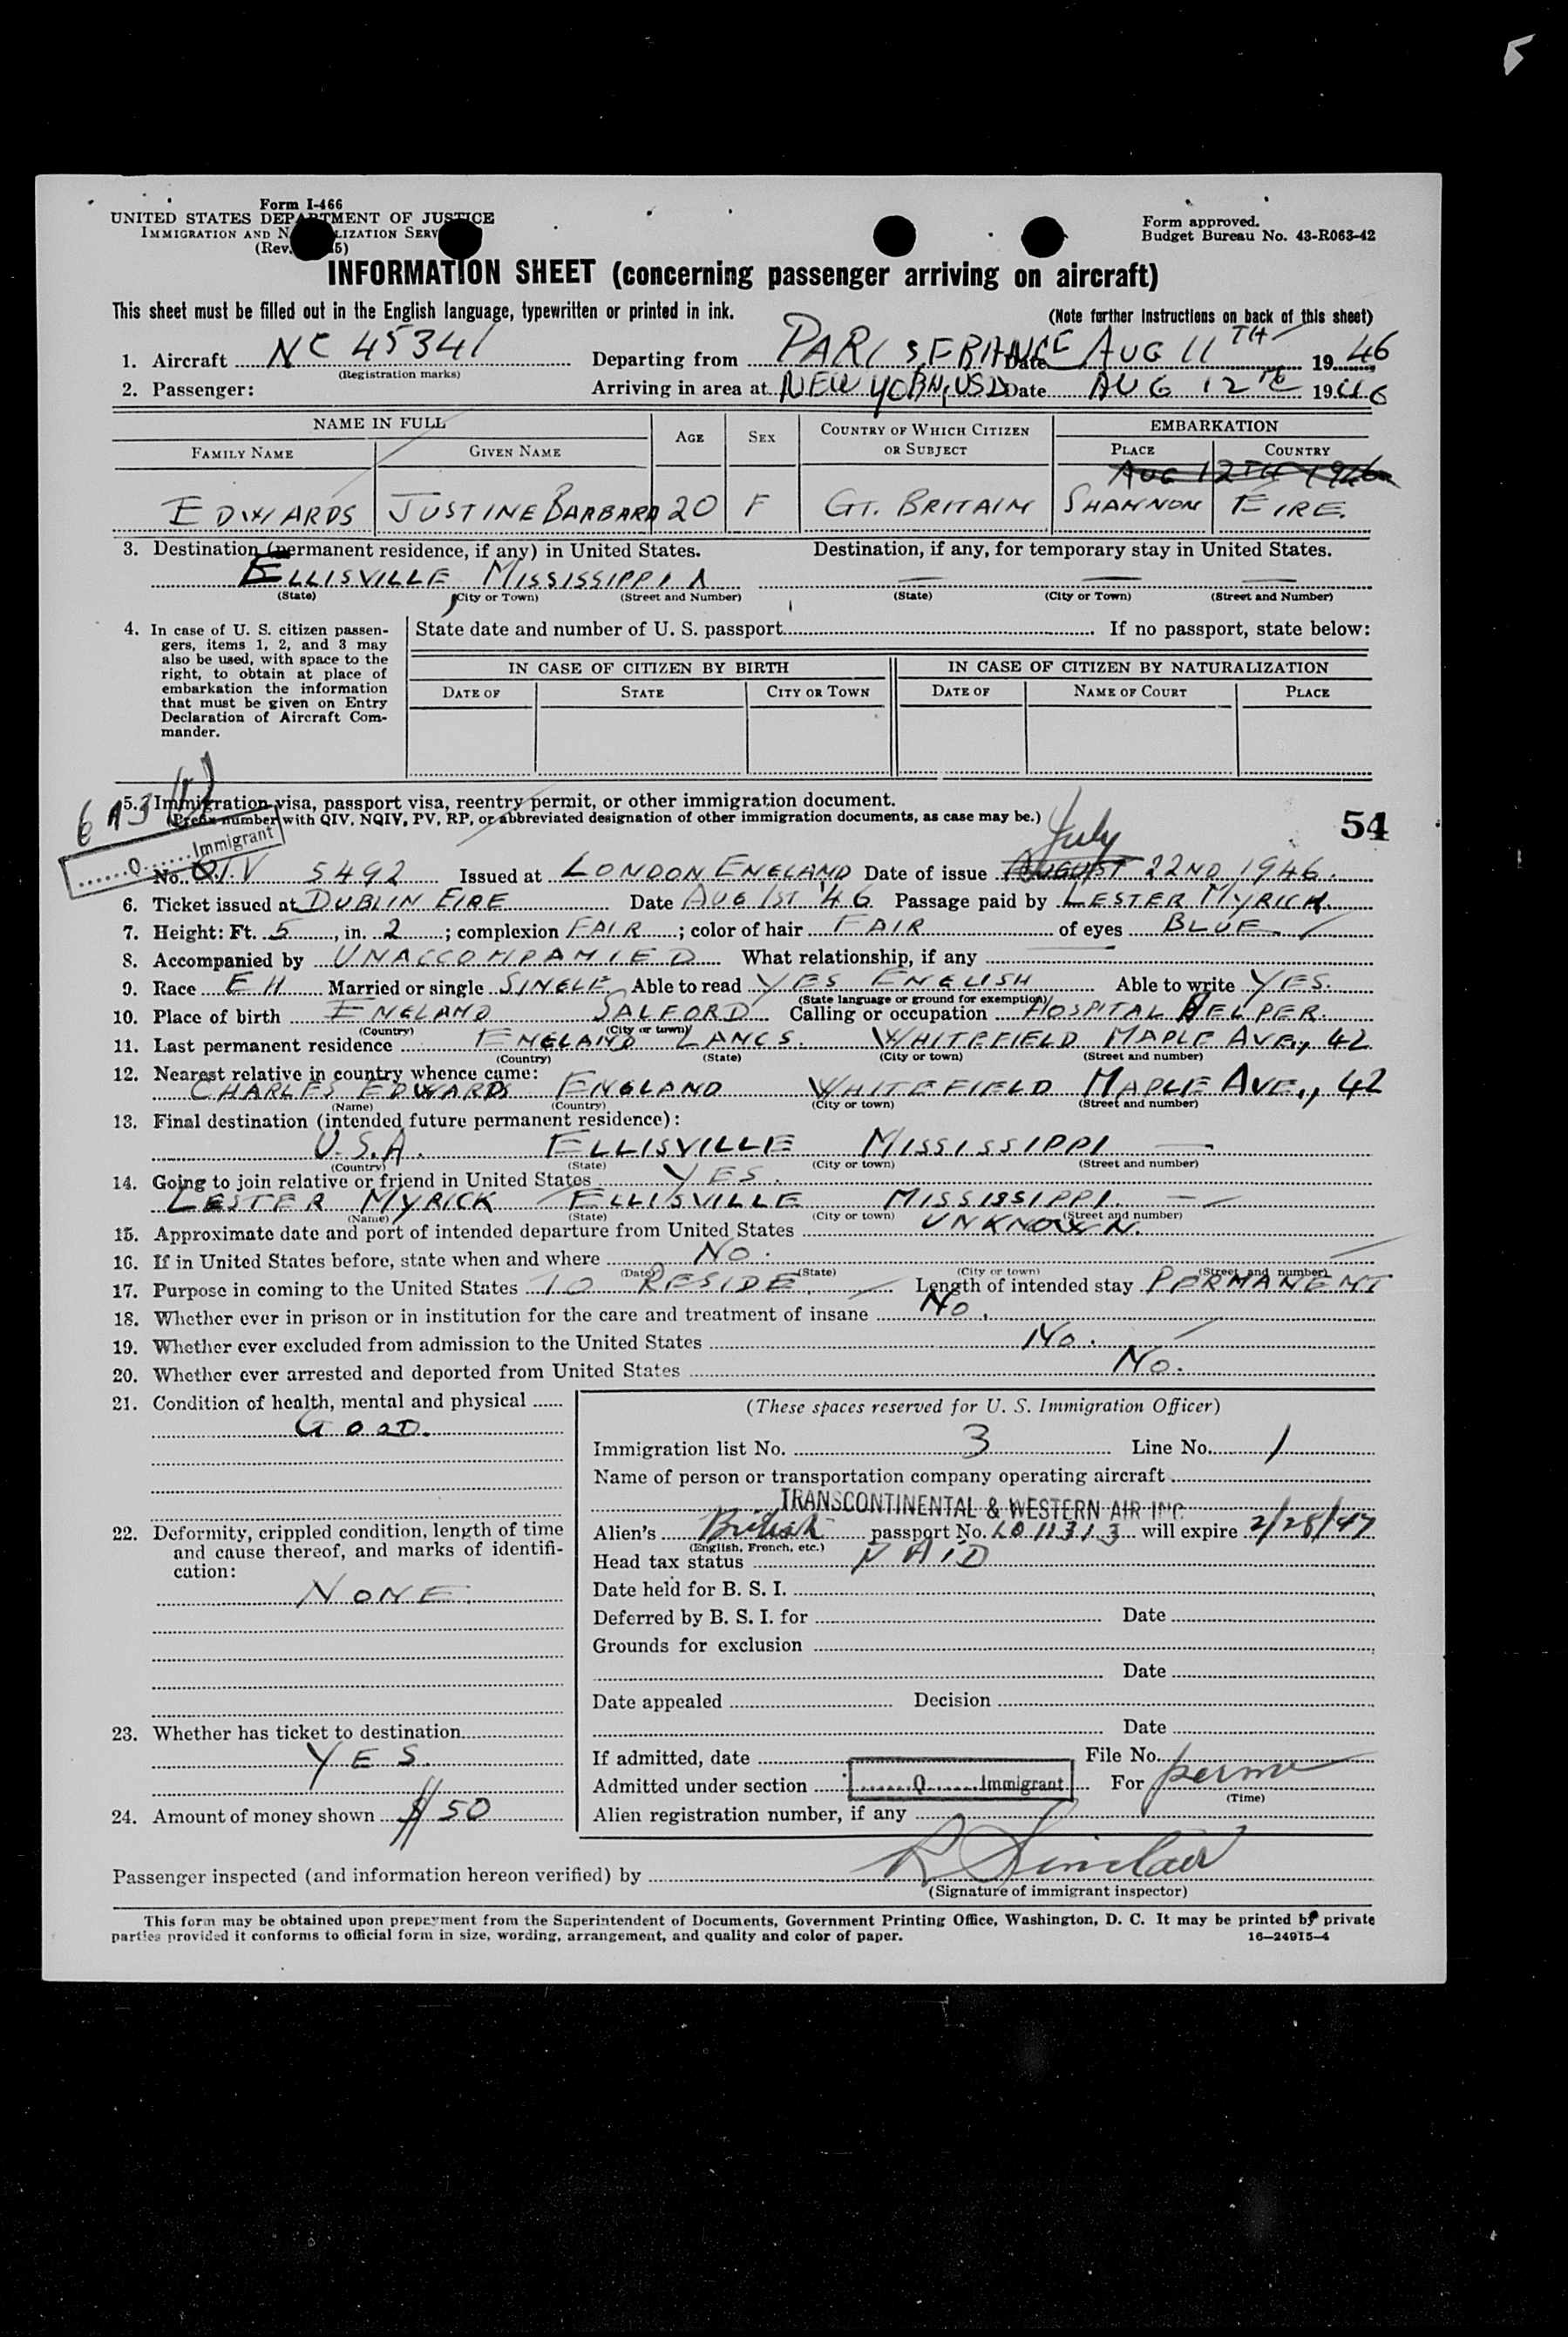 Form I-466
UNITED STATES DEPARTMENT OF JUSTICE
IMMIGRATION AND N LIZATION SERV
(Rev. 5)
Form approved.
Budget Bureau No. 43-R063-42
INFORMATION SHEET (concerning passenger arriving on aircraft)
This sheet must be filled out in the English language, typewritten or printed in ink.
(Note further instructions on back of this sheet)
1. Aircraft NC 45341 Departing from PARIS, FRANCE Date AUG 11TH 1946
(Registration marks)
2. Passenger: Arriving in area at NEW YORK, USA Date AUG 12TH 1946
NAME IN FULL AGE SEX COUNTRY OF WHICH CITIZEN OR SUBJECT EMBARKATION
FAMILY NAME GIVEN NAME PLACE COUNTRY
AUG 12TH 1946
EDWARDS JUSTINE BARBARA 20 F GT. BRITAIN SHANNON EIRE.
3. Destination (permanent residence, if any) in United States. Destination, if any, for temporary stay in United States.
ELLISVILLE MISSISSIPPI — — —
(State) (City or Town) (Street and Number) (State) (City or Town) (Street and Number)
4. In case of U. S. citizen passen-
gers, items 1, 2, and 3 may
also be used, with space to the
right, to obtain at place of
embarkation the information
that must be given on Entry
Declaration of Aircraft Com-
mander.
State date and number of U. S. passport If no passport, state below:
IN CASE OF CITIZEN BY BIRTH IN CASE OF CITIZEN BY NATURALIZATION
DATE OF STATE CITY OR TOWN DATE OF NAME OF COURT PLACE
5. Immigration visa, passport visa, reentry permit, or other immigration document.
(Prefix number with QIV, NQIV, PV, RP, or abbreviated designation of other immigration documents, as case may be.)
54
Q Immigrant
July
No. Q.I.V 5492 Issued at LONDON ENGLAND Date of issue AUGUST 22ND 1946.
6. Ticket issued at DUBLIN EIRE Date AUG 1ST '46 Passage paid by LESTER MYRICK
7. Height: Ft. 5, in. 2; complexion FAIR; color of hair FAIR of eyes BLUE
8. Accompanied by UNACCOMPANIED What relationship, if any
9. Race EN Married or single SINGLE Able to read YES ENGLISH Able to write YES.
(State language or ground for exemption)
10. Place of birth ENGLAND SALFORD Calling or occupation HOSPITAL HELPER.
(Country) (City or town)
11. Last permanent residence ENGLAND LANCS. WHITEFIELD MAPLE AVE., 42
(Country) (State) (City or town) (Street and number)
12. Nearest relative in country whence came:
CHARLES EDWARDS ENGLAND WHITEFIELD MAPLE AVE., 42
(Name) (Country) (City or town) (Street and number)
13. Final destination (intended future permanent residence):
U.S.A. ELLISVILLE MISSISSIPPI —
(Country) (State) (City or town) (Street and number)
14. Going to join relative or friend in United States YES.
LESTER MYRICK ELLISVILLE MISSISSIPPI. —
(Name) (State) (City or town) (Street and number)
15. Approximate date and port of intended departure from United States UNKNOWN.
16. If in United States before, state when and where NO.
(Date) (State) (City or town) (Street and number)
17. Purpose in coming to the United States TO RESIDE. Length of intended stay PERMANENT
18. Whether ever in prison or in institution for the care and treatment of insane NO.
19. Whether ever excluded from admission to the United States NO.
20. Whether ever arrested and deported from United States NO.
21. Condition of health, mental and physical
GOOD.
22. Deformity, crippled condition, length of time
and cause thereof, and marks of identifi-
cation:
NONE.
23. Whether has ticket to destination
YES.
24. Amount of money shown $50
(These spaces reserved for U. S. Immigration Officer)
Immigration list No. 3 Line No. 1
Name of person or transportation company operating aircraft
TRANSCONTINENTAL & WESTERN AIR INC.
Alien's British passport No. LO 11313 will expire 2/28/47
(English, French, etc.)
Head tax status PAID
Date held for B. S. I.
Deferred by B. S. I. for Date
Grounds for exclusion
Date
Date appealed Decision
Date
If admitted, date File No.
Admitted under section Q Immigrant For perm
(Time)
Alien registration number, if any
Passenger inspected (and information hereon verified) by R Sinclair
(Signature of immigrant inspector)
This form may be obtained upon prepayment from the Superintendent of Documents, Government Printing Office, Washington, D. C. It may be printed by private
parties provided it conforms to official form in size, wording, arrangement, and quality and color of paper. 16—24915-4